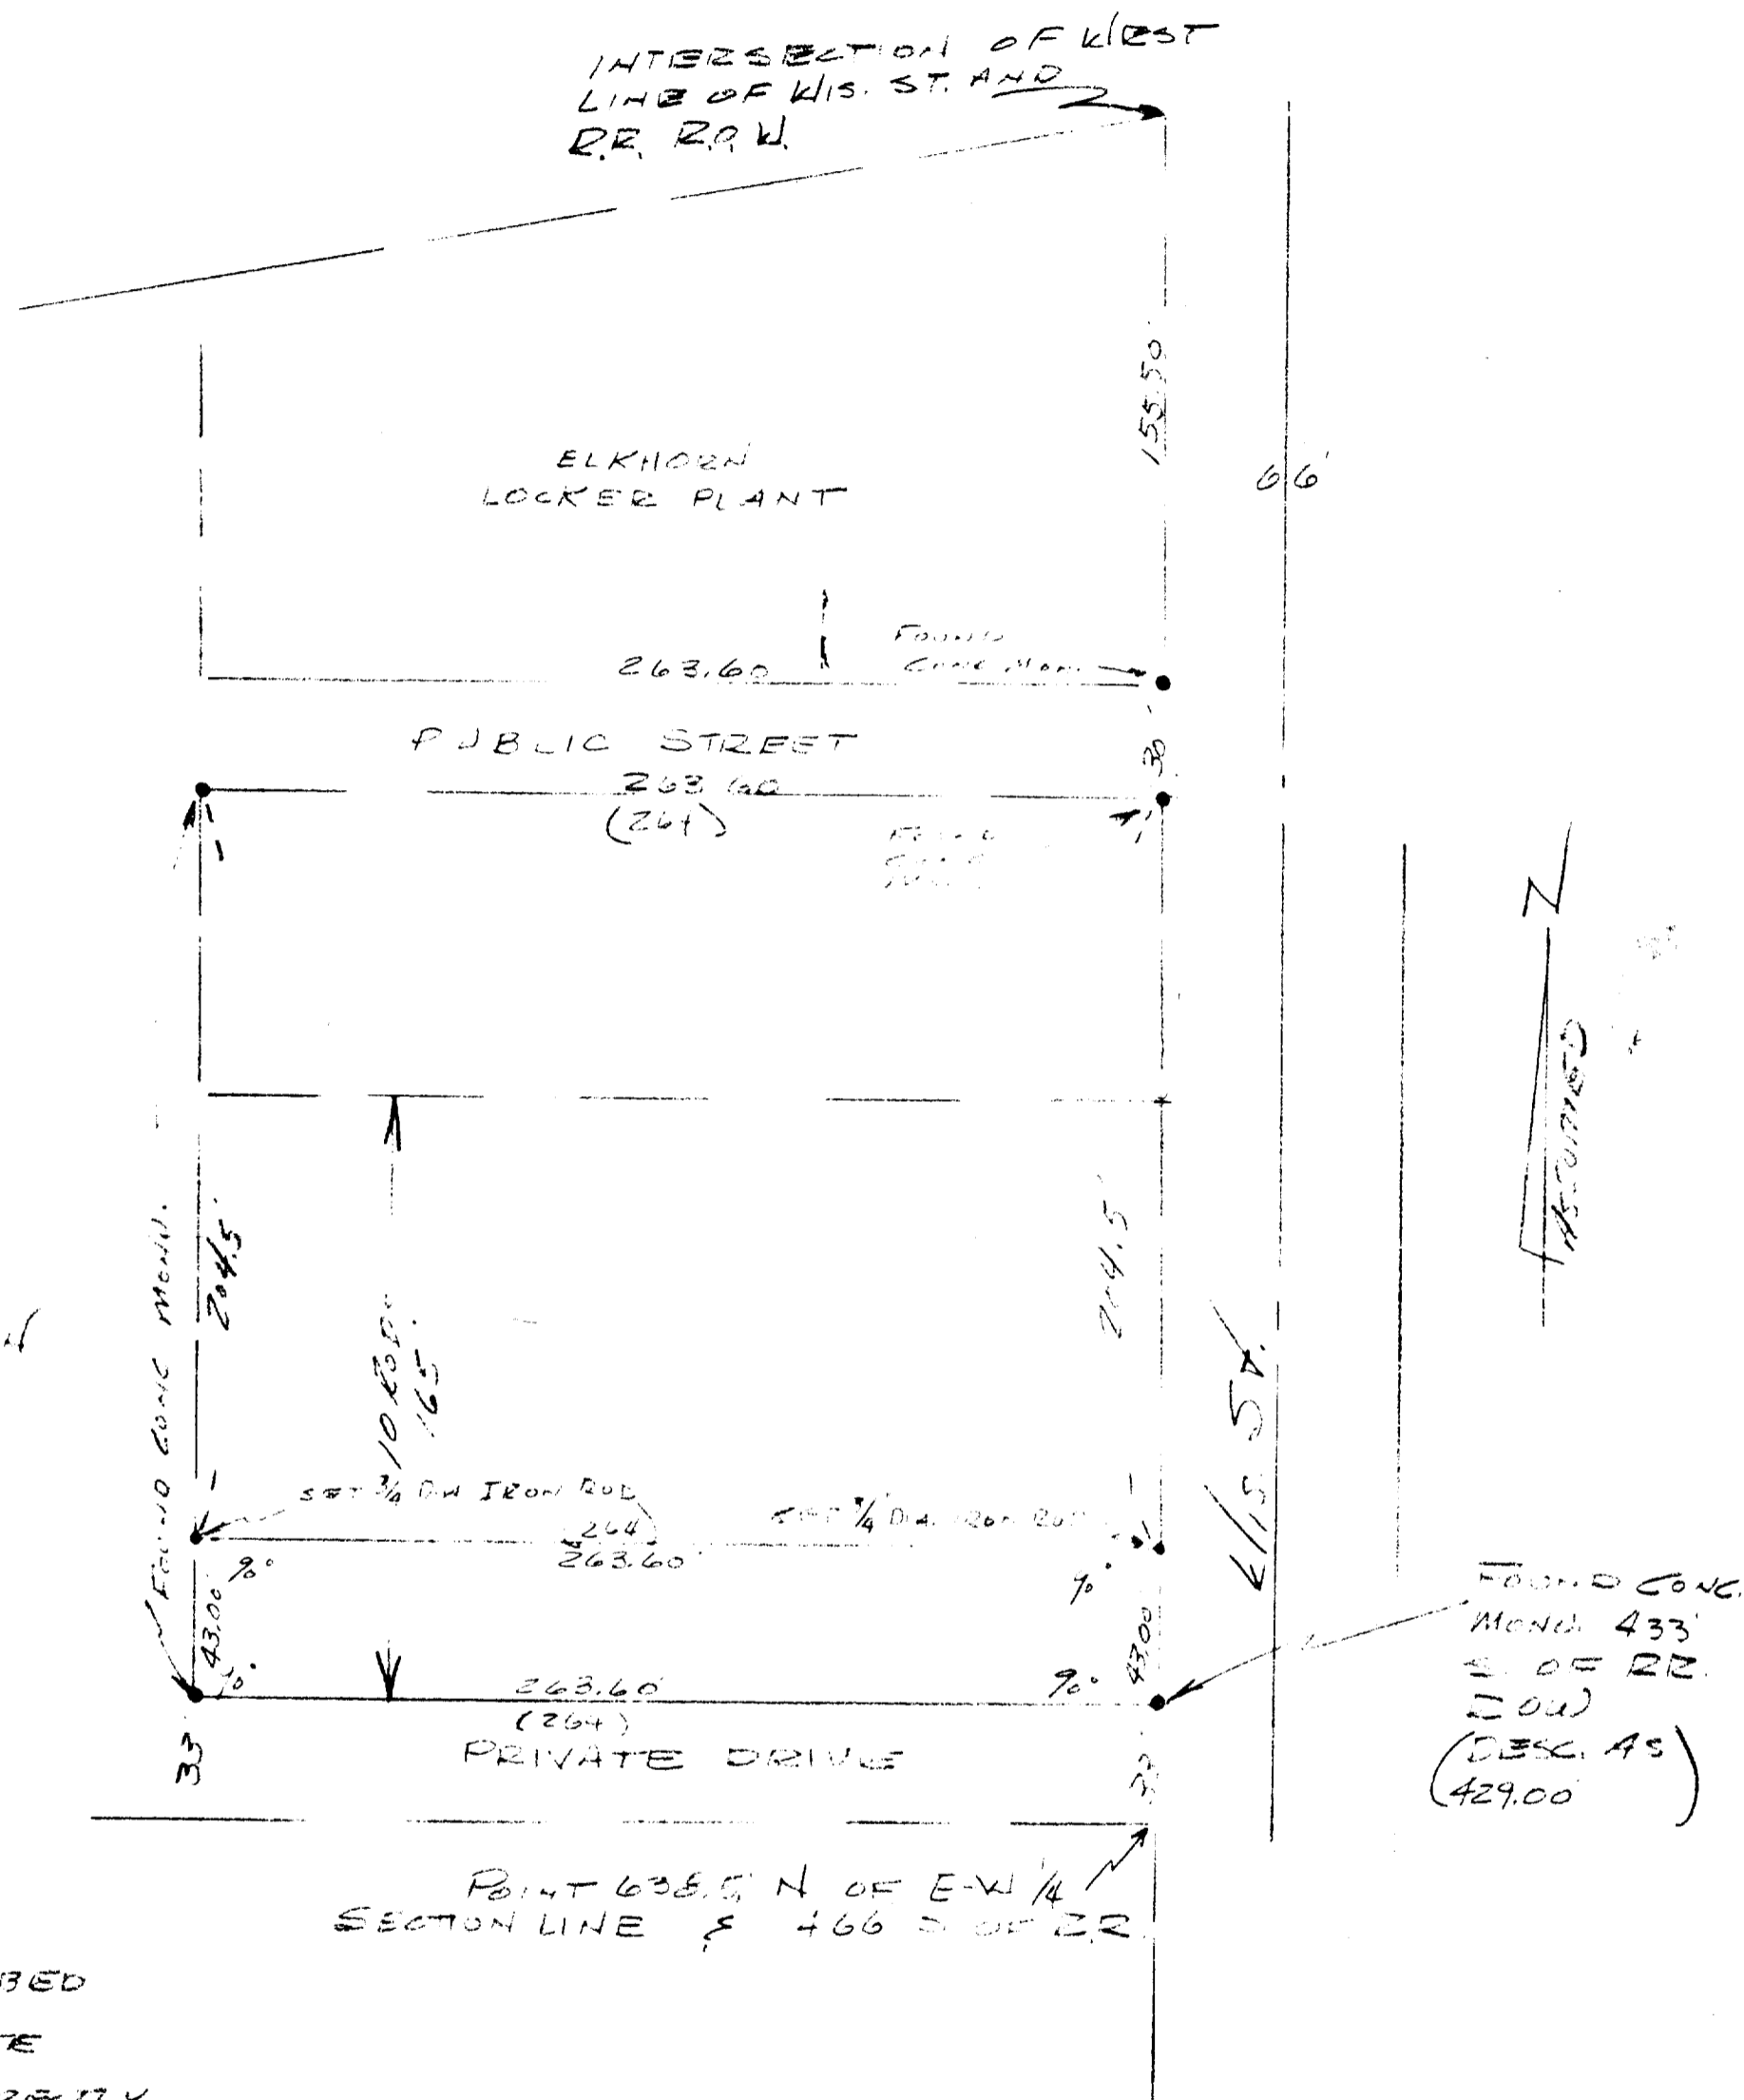 INTERSECTION OF WEST
LINE OF WIS. ST. AND
R.R. R.O.W.
155.50'
66'
ELKHORN
LOCKER PLANT
FOUND
CONC. MON.
263.60
PUBLIC STREET
30
263.60
(264)
FOUND
N
ASSUMED
FOUND CONC MON.
204.5'
10 RODS
165
204.5'
WIS. ST.
SET 3/4 DIA IRON ROD
SET 3/4 DIA. IRON ROD
(264)
263.60'
90°
90°
43.00'
43.00
90°
90°
263.60'
(264)
PRIVATE DRIVE
33
33
FOUND CONC.
MON. 433'
S. OF RR.
ROW
(DESC. AS
429.00')
POINT 638.5' N OF E-W 1/4
SECTION LINE & 466 S OF R.R.
BED
TE